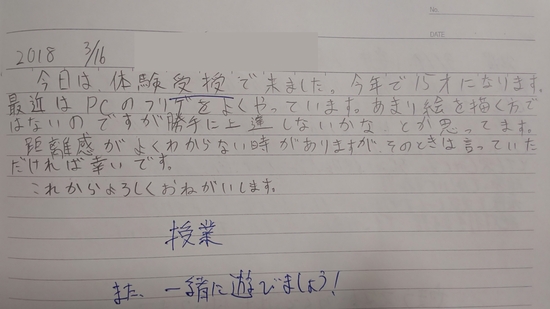 No.
DATE
2018 3/16
今日は、体験受授で来ました。今年で15才になります。
最近はPCのフリゲをよくやっています。あまり絵を描く方で
はないのですが勝手に上達しないかな、とか思ってます。
距離感がよくわからない時がありますが、そのときは言っていた
だければ幸いです。
これからよろしくおねがいします。
授業
また、一緒に遊びましょう!